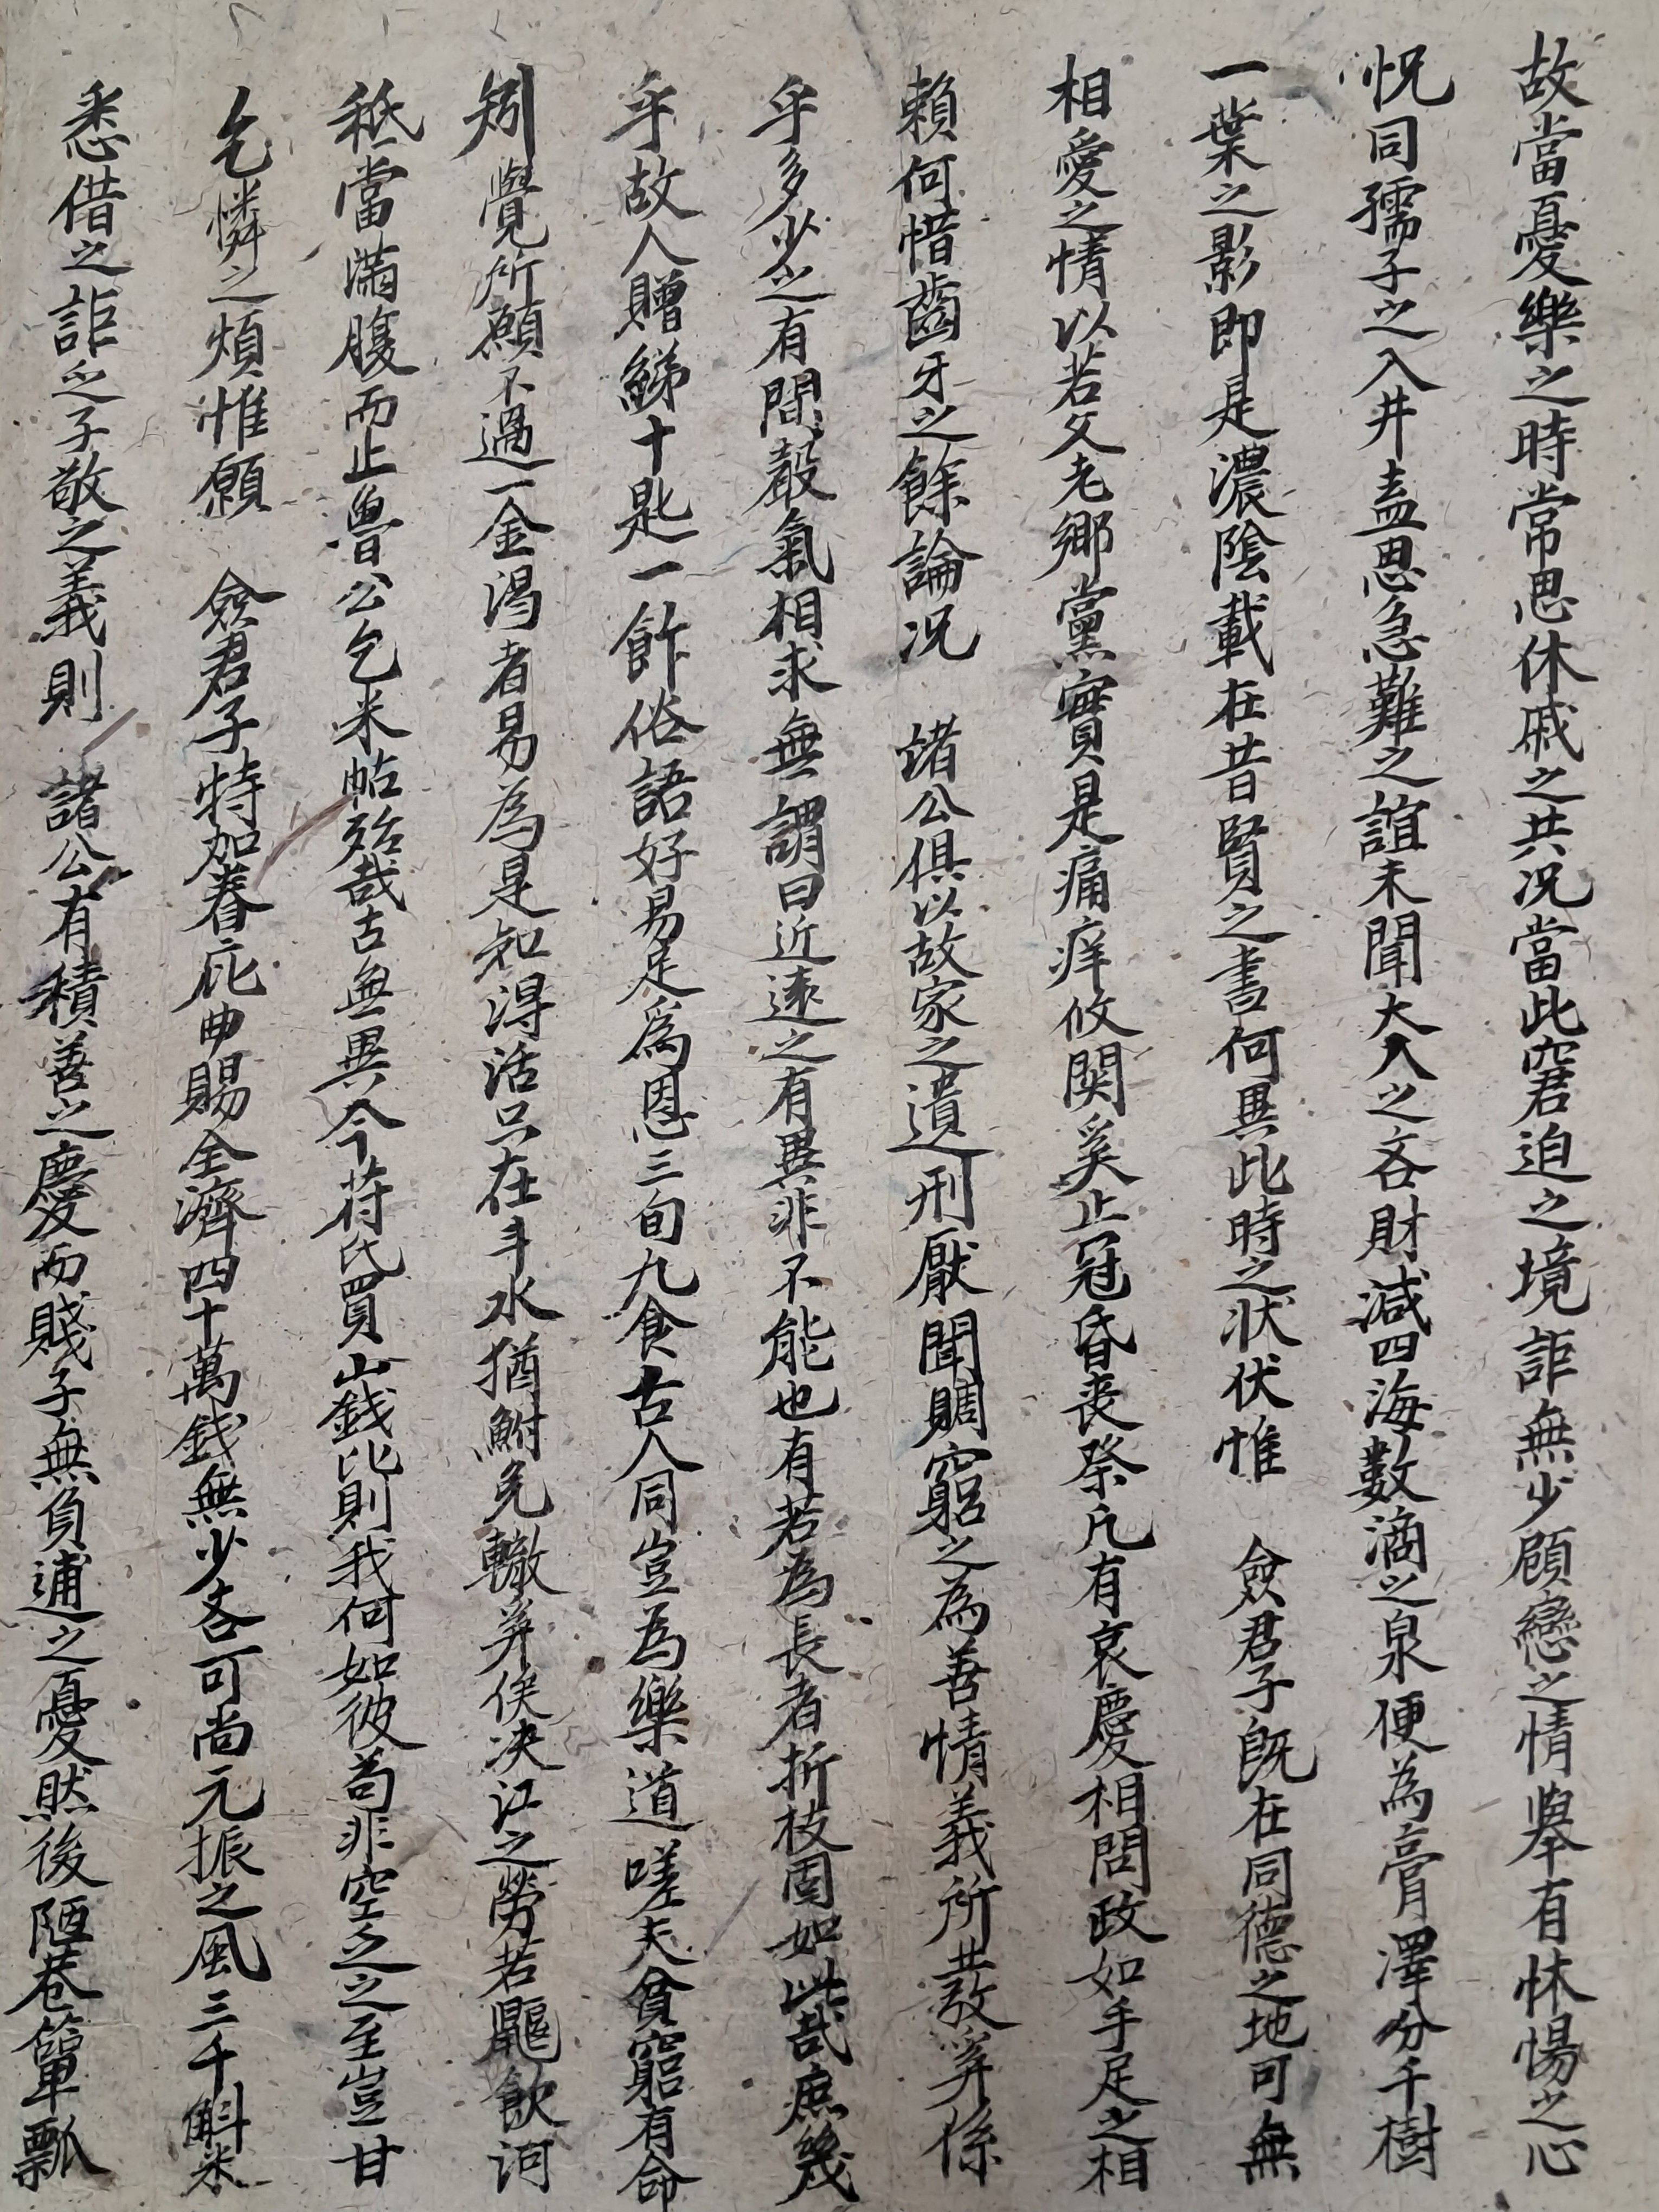 故當憂樂之時常思休戚之共况當此窘迫之境詎無少顧戀之情擧有怵惕之心
怳同孺子之入井盍思急難之誼未聞大人之吝財減四海數滴之泉便為膏澤分千樹
一葉之影即是濃陰載在昔賢之書何異此時之状伏惟 僉君子既在同德之地可無
相愛之情以若父老鄉黨實是痛痒攸関奚止冠昏丧祭凡有哀慶相問政如手足之相
賴何惜齒牙之餘論况 诸公俱以故家之遺刑厭聞賙窮之為善情義所㪯笲係
乎多少之有間聲氣相求無謂曰近遠之有異非不能也有若為長者折枝固如此哉庶幾
乎故人贈綈十匙一飵俗語好易足爲恩三旬九食古人同豈為樂道嗟夫貧窮有命
矧覺所願不過一金渴者易為是知得活只在斗水猶鮒免轍笲俟决江之勞若鼴飲河
秪當滿腹而止魯公乞米帖殆哉古無異今苻氏買山錢比則我何如彼苟非空乏之至豈甘
乞憐之煩惟願 僉君子特加眷庇曲賜全濟四十萬錢無少吝可尚元振之風三千斛米
悉借之詎乏子敬之義則 諸公有積善之慶而賤子無負逋之憂然後陋巷簞瓢